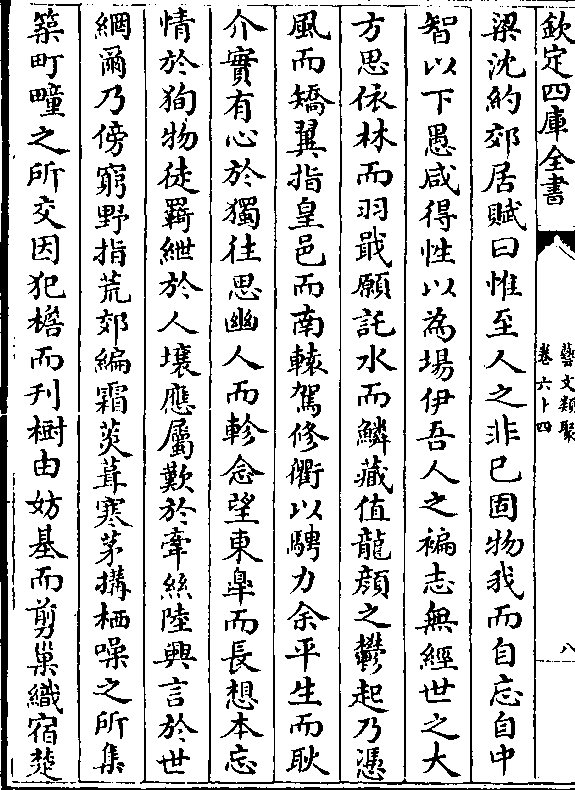 欽定四庫全書
藝文類聚
卷六十四
八
梁沈約郊居賦曰惟至人之非己固物我而自忘自中
智以下愚咸得性以為場伊吾人之褊志無經世之大
方思依林而羽戢願託水而鱗藏值龍顔之鬱起乃憑
風而矯翼指皇邑而南轅駕修衢以騁力余平生而耿
介實有心於獨往思幽人而軫念望東臯而長想本忘
情於狥物徒羇紲於人壤應屬歎於牽絲陸興言於世
網爾乃傍窮野指荒郊編霜菼葺寒茅搆栖噪之所集
築町疃之所交因犯檐而刋樹由妨基而剪巢織宿楚